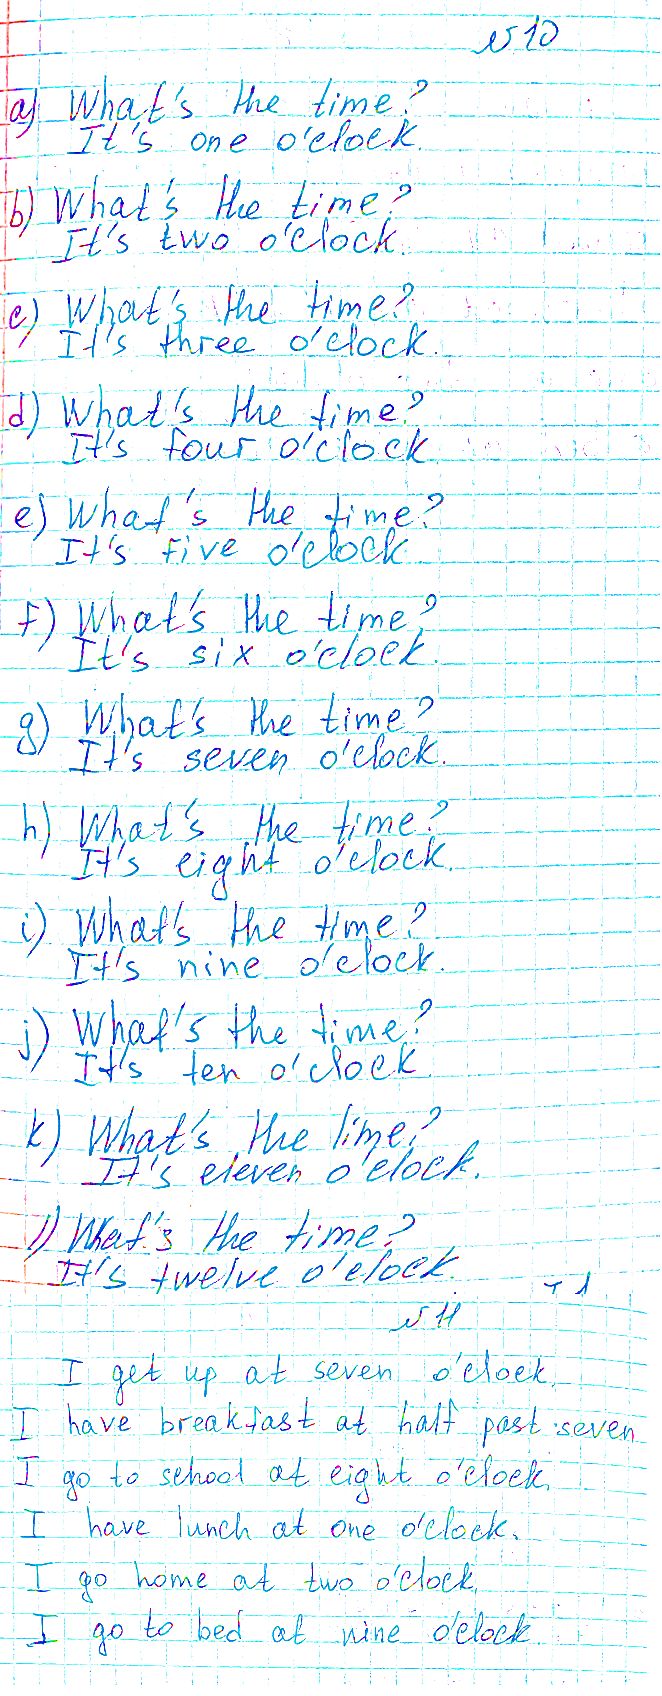 №10
a) What's the time?
It's one o'clock.
b) What's the time?
It's two o'clock.
c) What's the time?
It's three o'clock.
d) What's the time?
It's four o'clock
e) What's the time?
It's five o'clock
f) What's the time?
It's six o'clock.
g) What's the time?
It's seven o'clock.
h) What's the time?
It's eight o'clock.
i) What's the time?
It's nine o'clock.
j) What's the time?
It's ten o'clock
k) What's the time?
It's eleven o'clock.
l) What's the time?
It's twelve o'clock.
№11
I get up at seven o'clock.
I have breakfast at half past seven
I go to school at eight o'clock.
I have lunch at one o'clock.
I go home at two o'clock.
I go to bed at nine o'clock